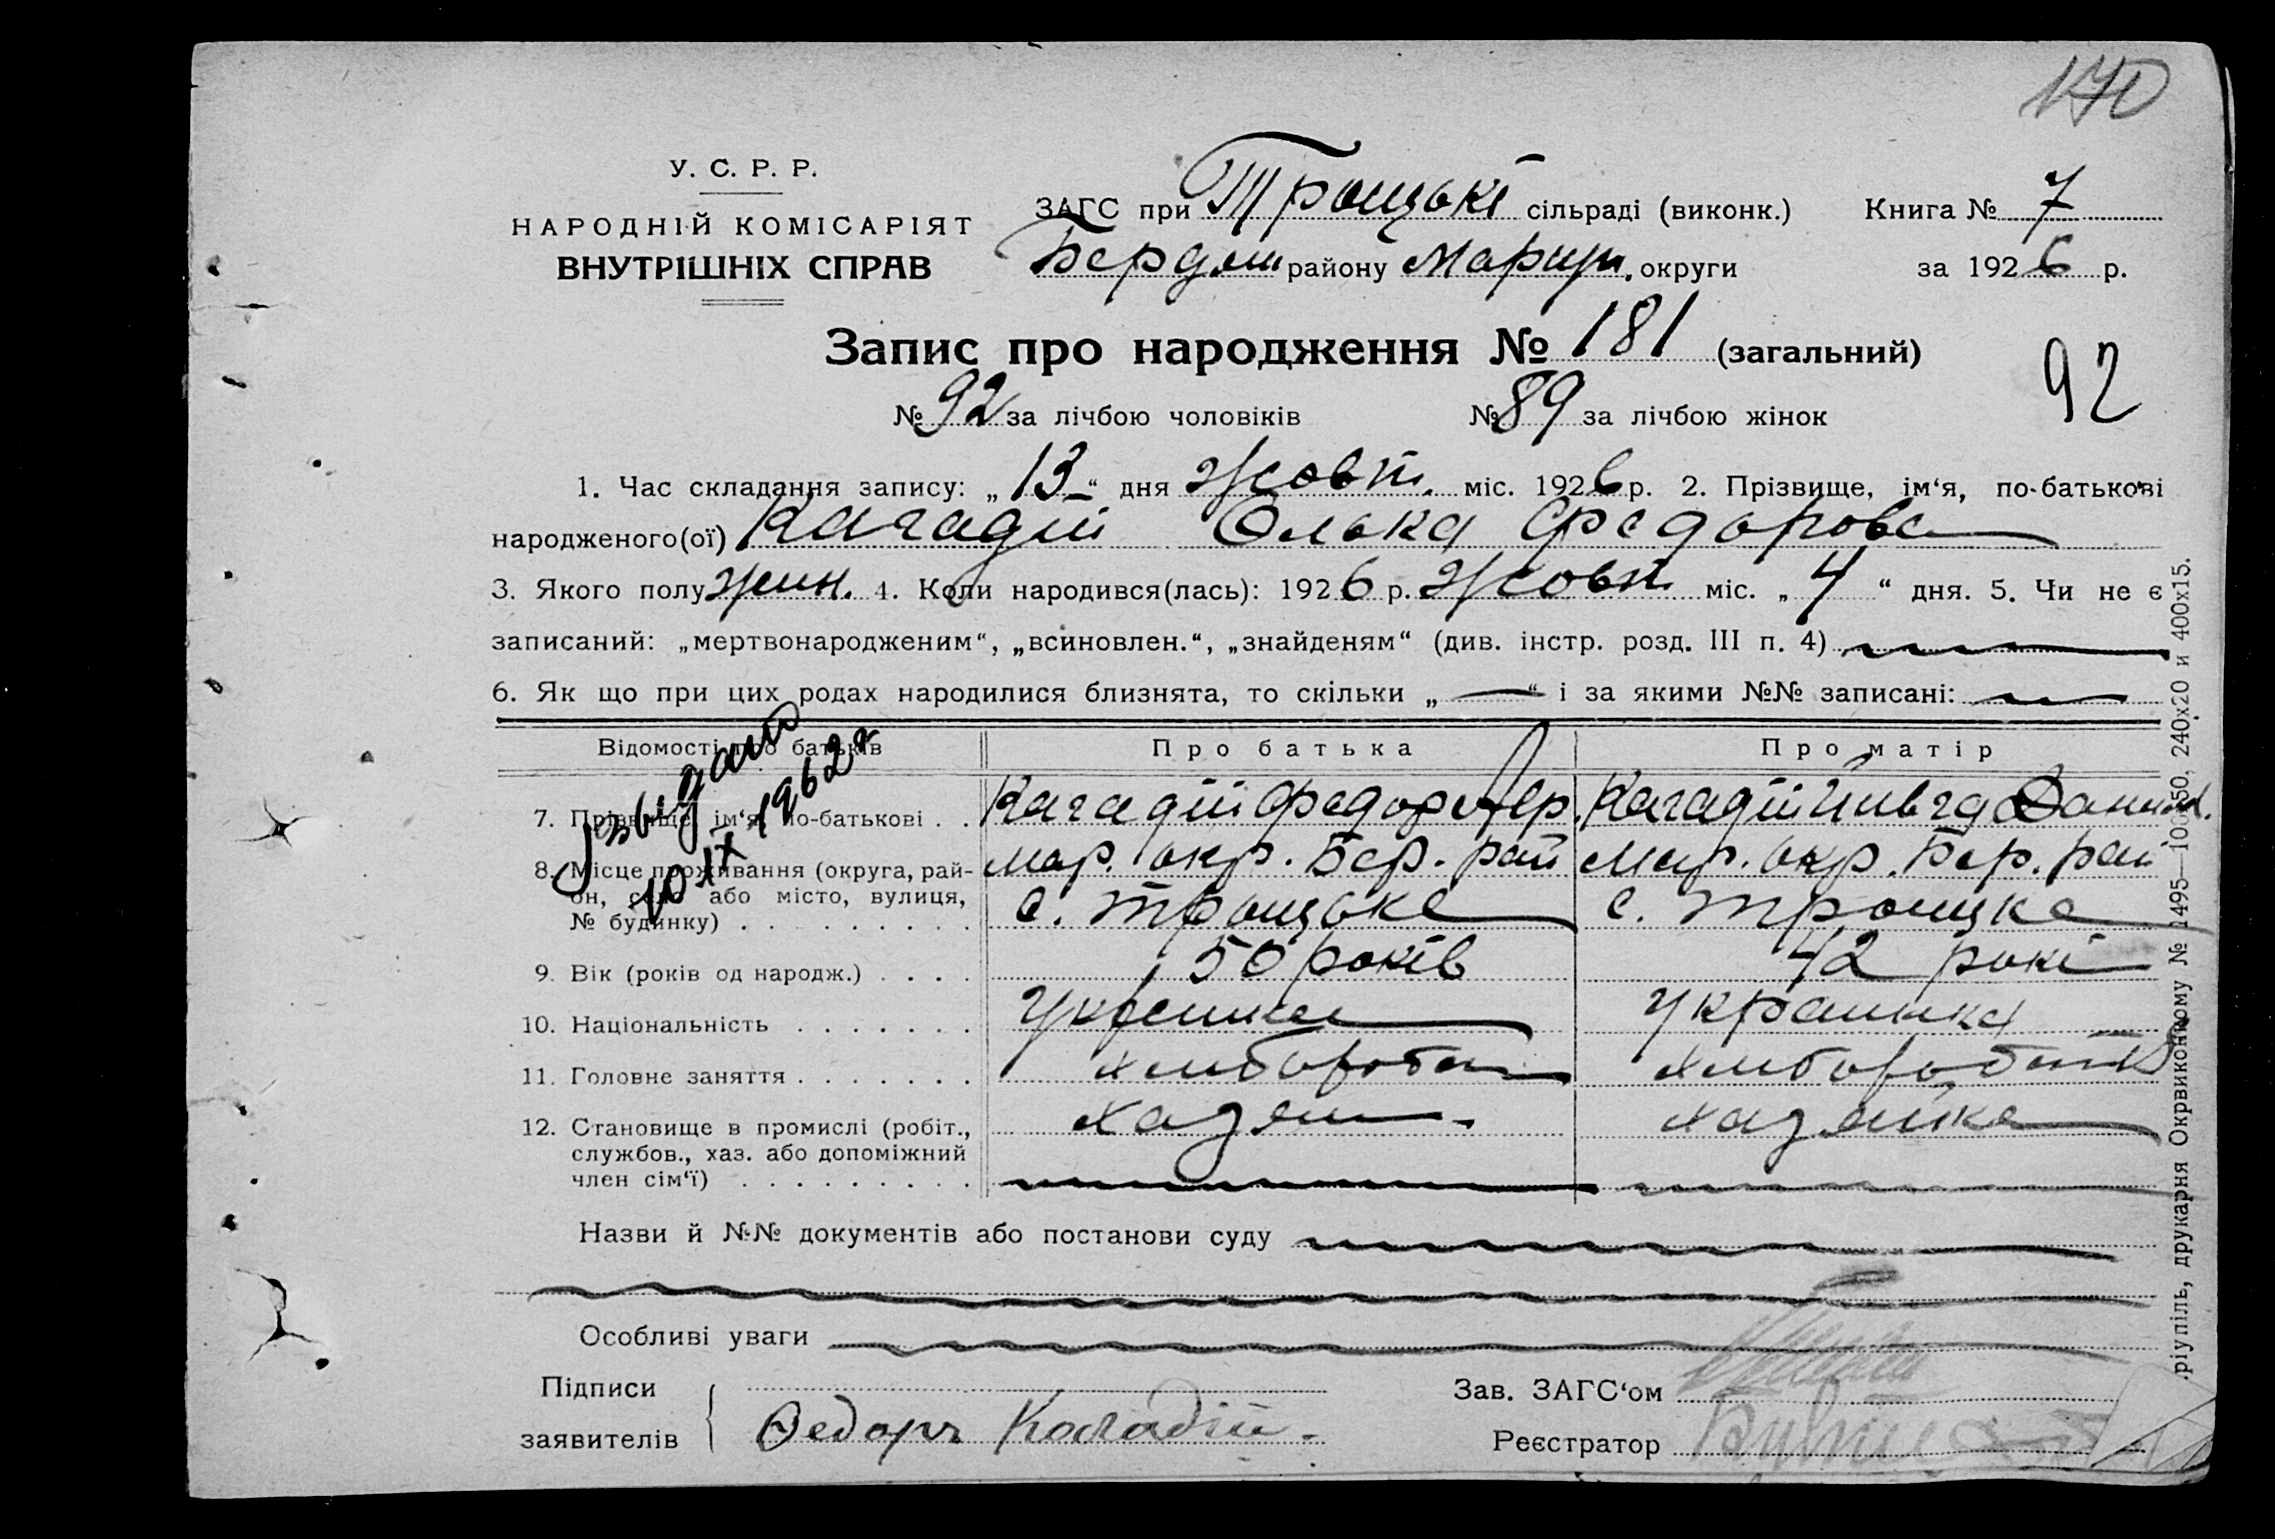 170
У. С. Р. Р.
НАРОДНІЙ КОМІСАРІЯТ
ВНУТРІШНІХ СПРАВ
ЗАГС при Троцькі сільраді (виконк.) Книга № 7
Бердян району Маріуп. округи за 1926 р.
Запис про народження № 181 (загальний)
№ 92 за лічбою чоловіків № 89 за лічбою жінок
92
1. Час складання запису: „13“ дня Жовт. міс. 1926 р. 2. Прізвище, ім‘я, по-батькові
народженого(ої) Кагадій Олька Федорова
3. Якого полу жин. 4. Коли народився(лась): 1926 р. Жовт міс. „4“ дня. 5. Чи не є
записаний: „мертвонародженим“, „всиновлен.“, „знайденям“ (див. інстр. розд. III п. 4)
6. Як що при цих родах народилися близнята, то скільки „ — “ і за якими №№ записані:
Відомості про батьків Про батька Про матір
10 IX 1962 г
7. Прізвище, ім‘я, по-батькові . . Кагадій Федор Кагадій
8. Місце проживання (округа, рай- Мар. окр. Бер. рай Мар. окр. Бер. рай
он, село або місто, вулиця, с. Троцьке с. Троицке
№ будинку) . . . . . . . . .
9. Вік (років од народж.) . . . . 50 років 42 рокі
10. Національність . . . . . . . Украинка
11. Головне заняття . . . . . . . хлибороб
12. Становище в промислі (робіт., хазяин хазяйка
службов., хаз. або допоміжний
член сім‘ї) . . . . . . . . .
Назви й №№ документів або постанови суду
Особливі уваги
Підписи
заявителів Федоръ Каладій
Зав. ЗАГС‘ом
Реєстратор
ріупіль, друкарня Окрвиконкому № 1495—100×50, 240×20 и 400×15.